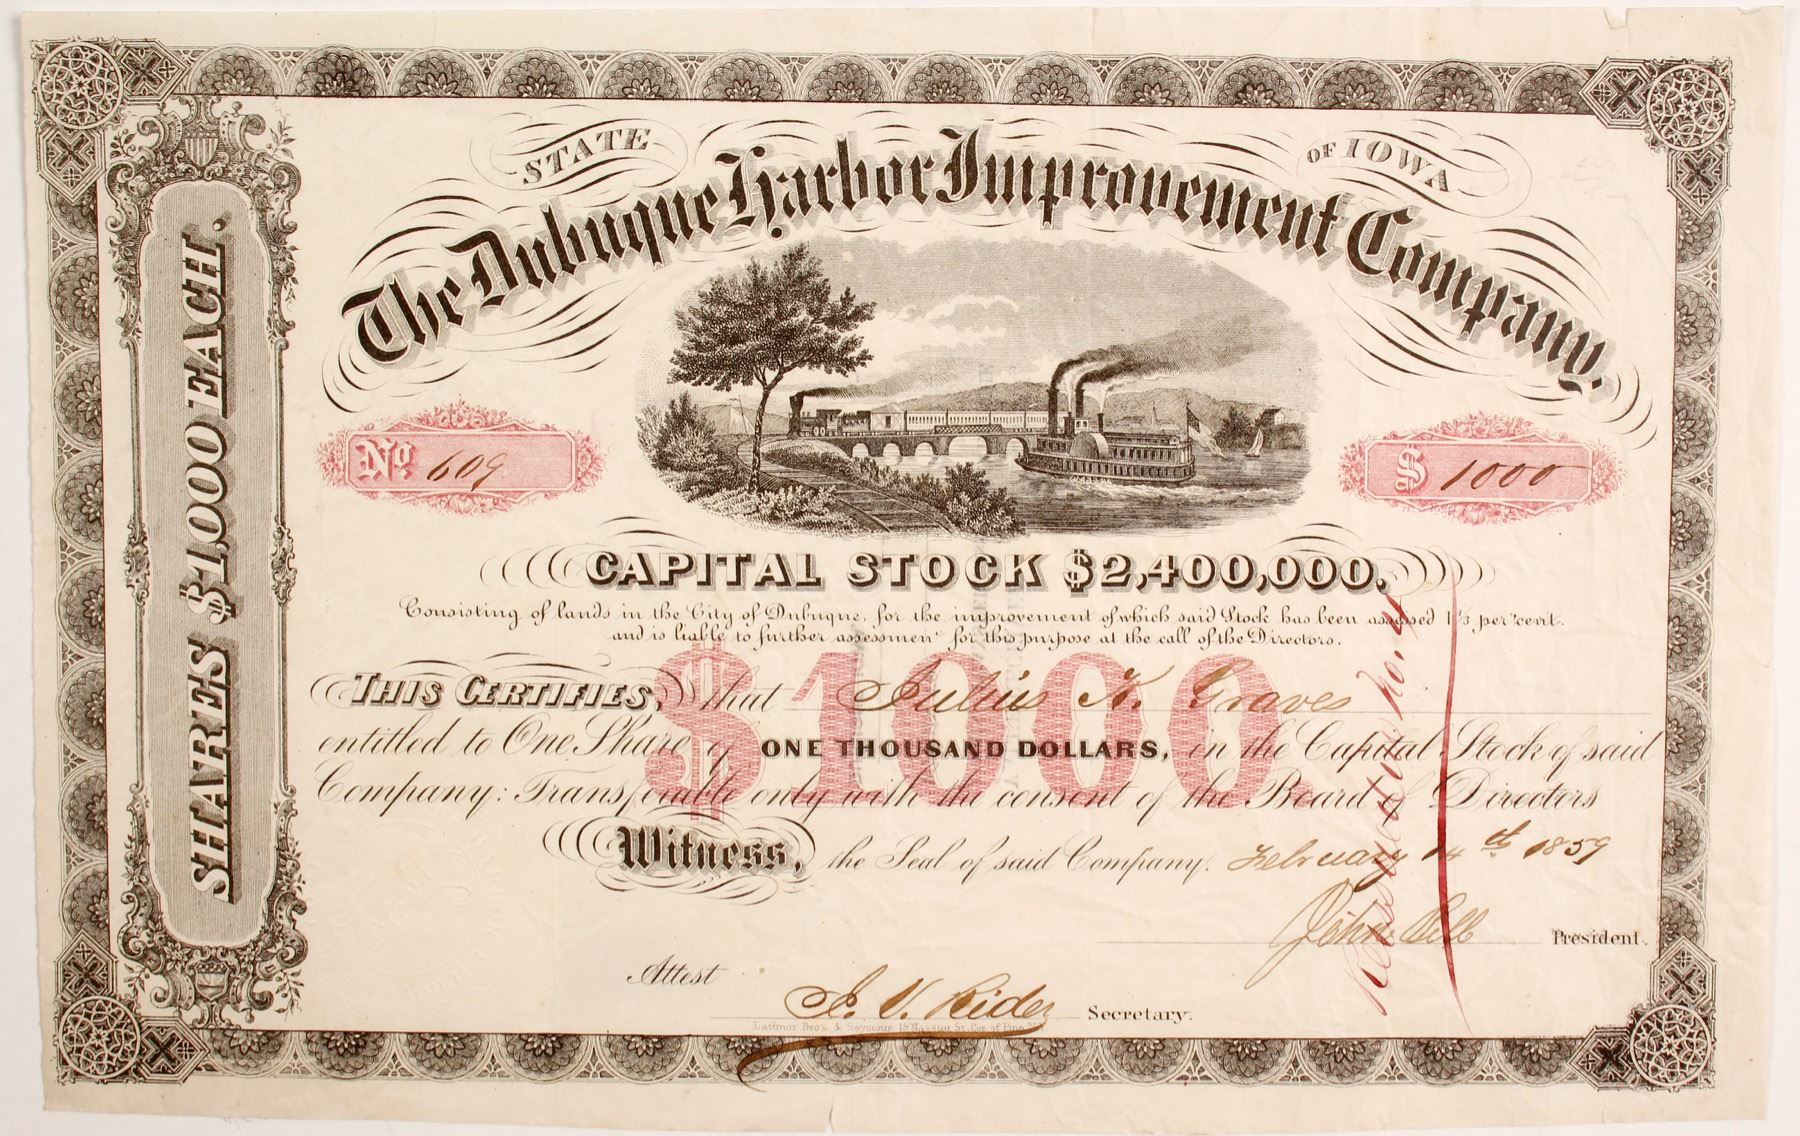 STATE OF IOWA
The Dubuque Harbor Improvement Company.
SHARES $1,000 EACH.
No 609
$ 1000
CAPITAL STOCK $2,400,000.
Consisting of lands in the City of Dubuque, for the improvement of which said Stock has been assessed 1 1/3 per cent.
and is liable to further assessment for this purpose at the call of the Directors.
$1000
THIS CERTIFIES, that Julius K. Graves
entitled to One Share of ONE THOUSAND DOLLARS, in the Capital Stock of said
Company: Transferable only with the consent of the Board of Directors
Witness, the Seal of said Company. February 14th 1859
John Bell President.
Attest
Secretary.
Latimer Bro's. & Seymour 15 Nassau St. Cor. of Pine N.Y.